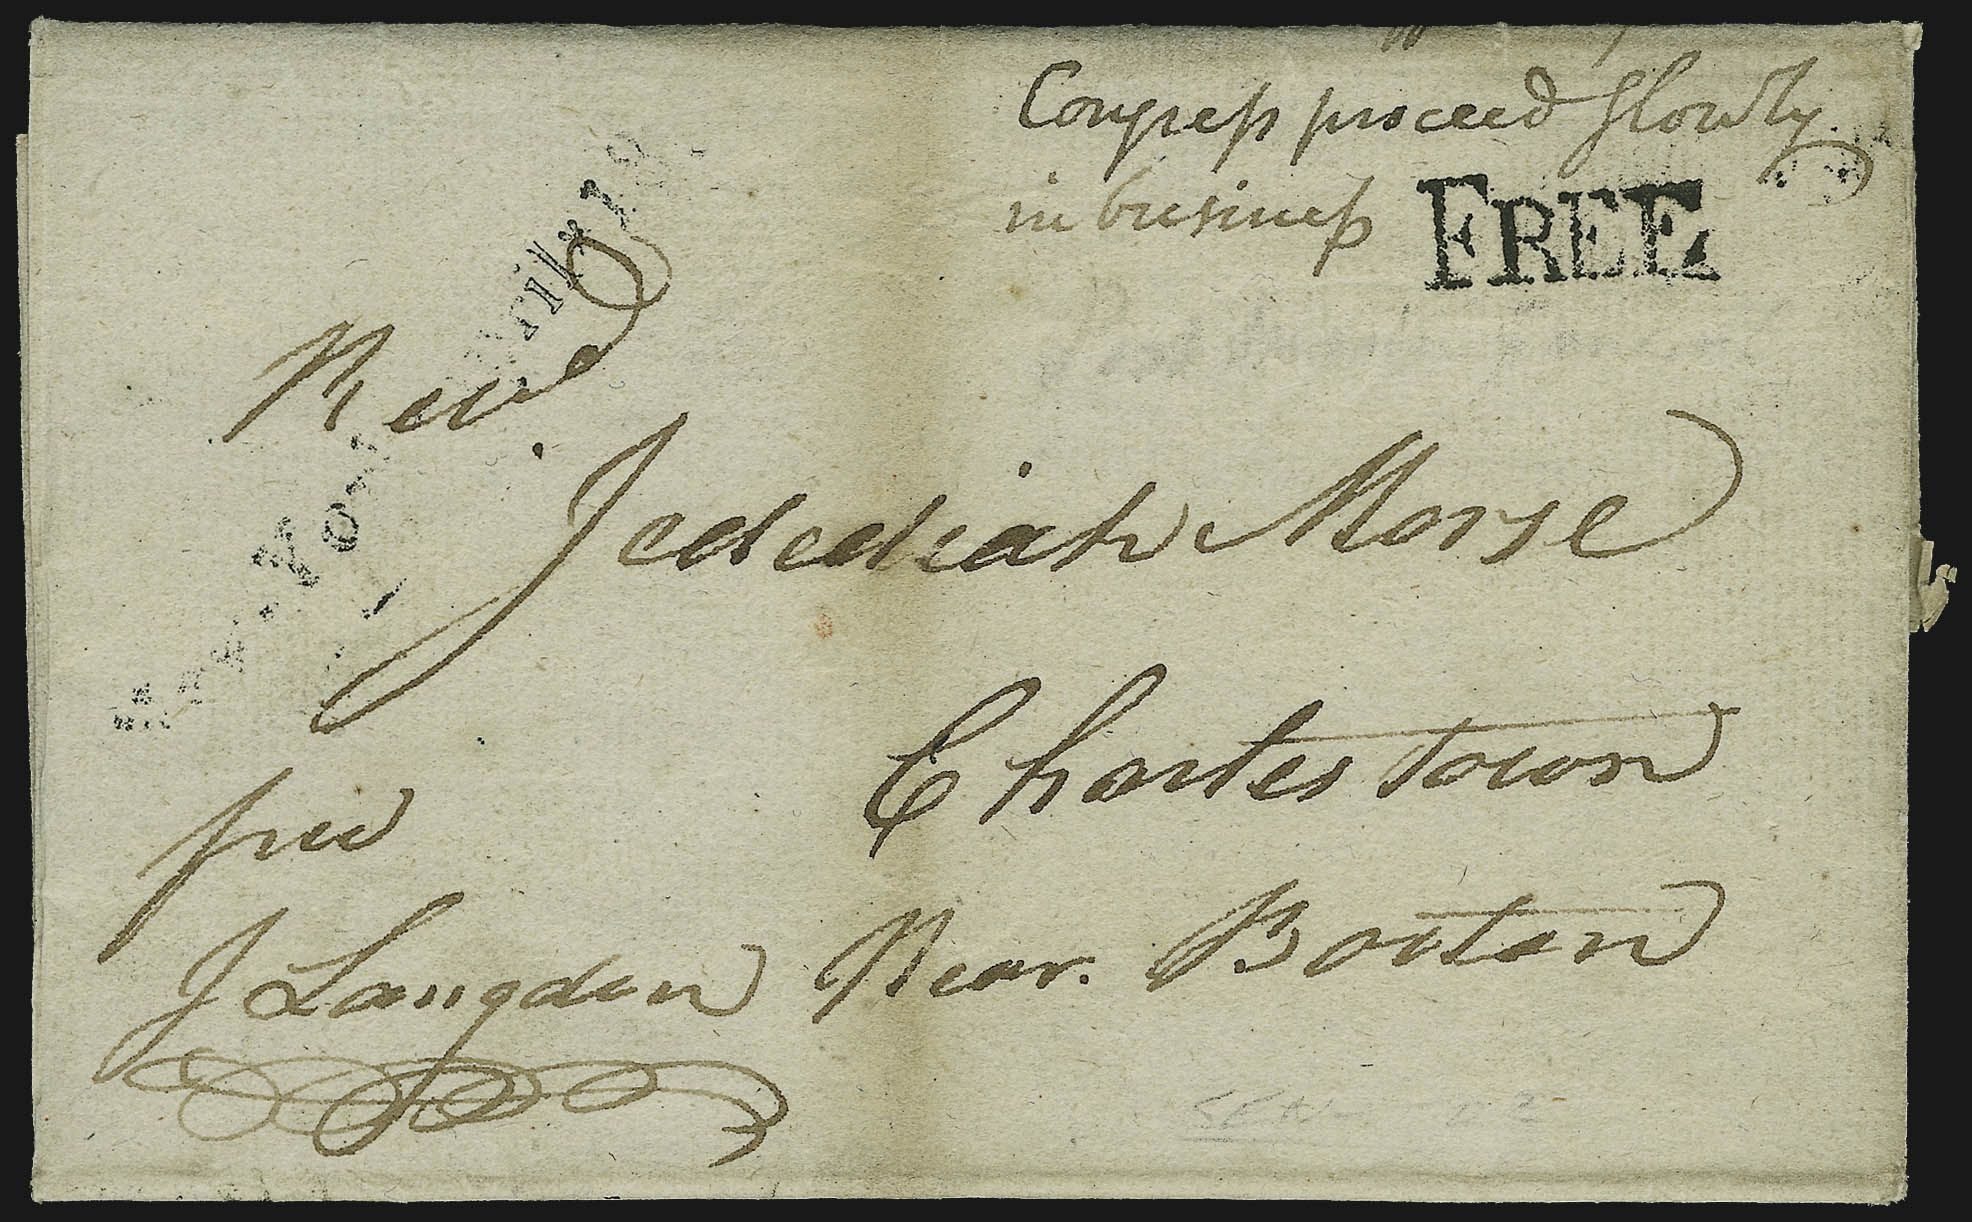 Congress proceed slowly
in business
FREE
Revd
Jedediah Morse
Charlestown
Near Boston
free
J Langdon